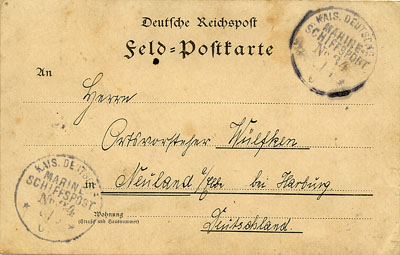 Deutsche Reichspost
Feld-Postkarte
An
Herrn
Ortsvorsteher Wülfken
in Neuland a/Elbe bei Harburg.
Wohnung
(Straße und Hausnummer)
Deutschland.
KAIS. DEUTSCHE
MARINE-
SCHIFFSPOST
No 74
KAIS. DEUTSCHE
MARINE-
SCHIFFSPOST
No 74